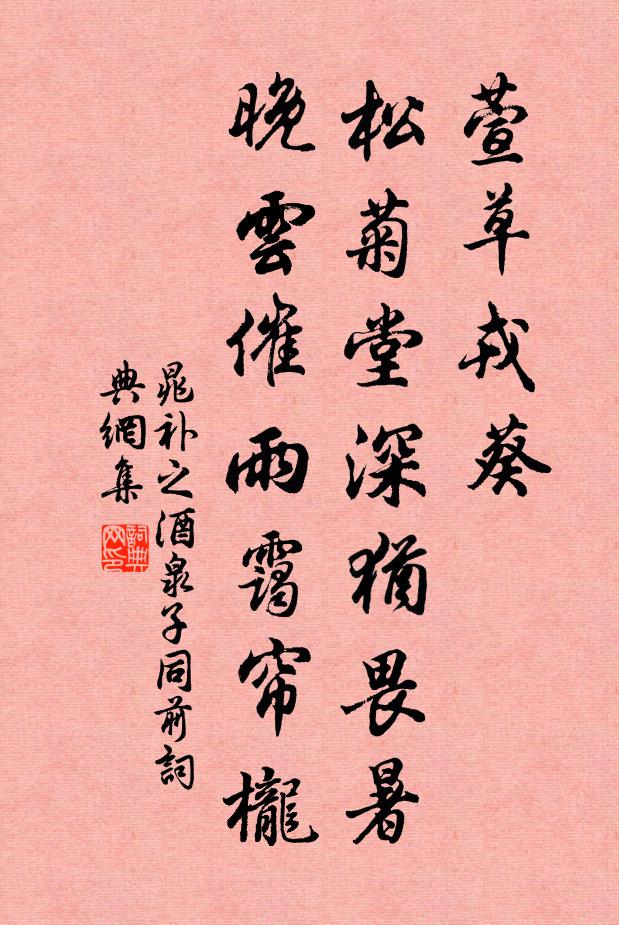 萱草戎葵
松菊堂深猶畏暑
晚雲催雨靄帘櫳
晁补之酒泉子同前詞
典網集
詞典网印